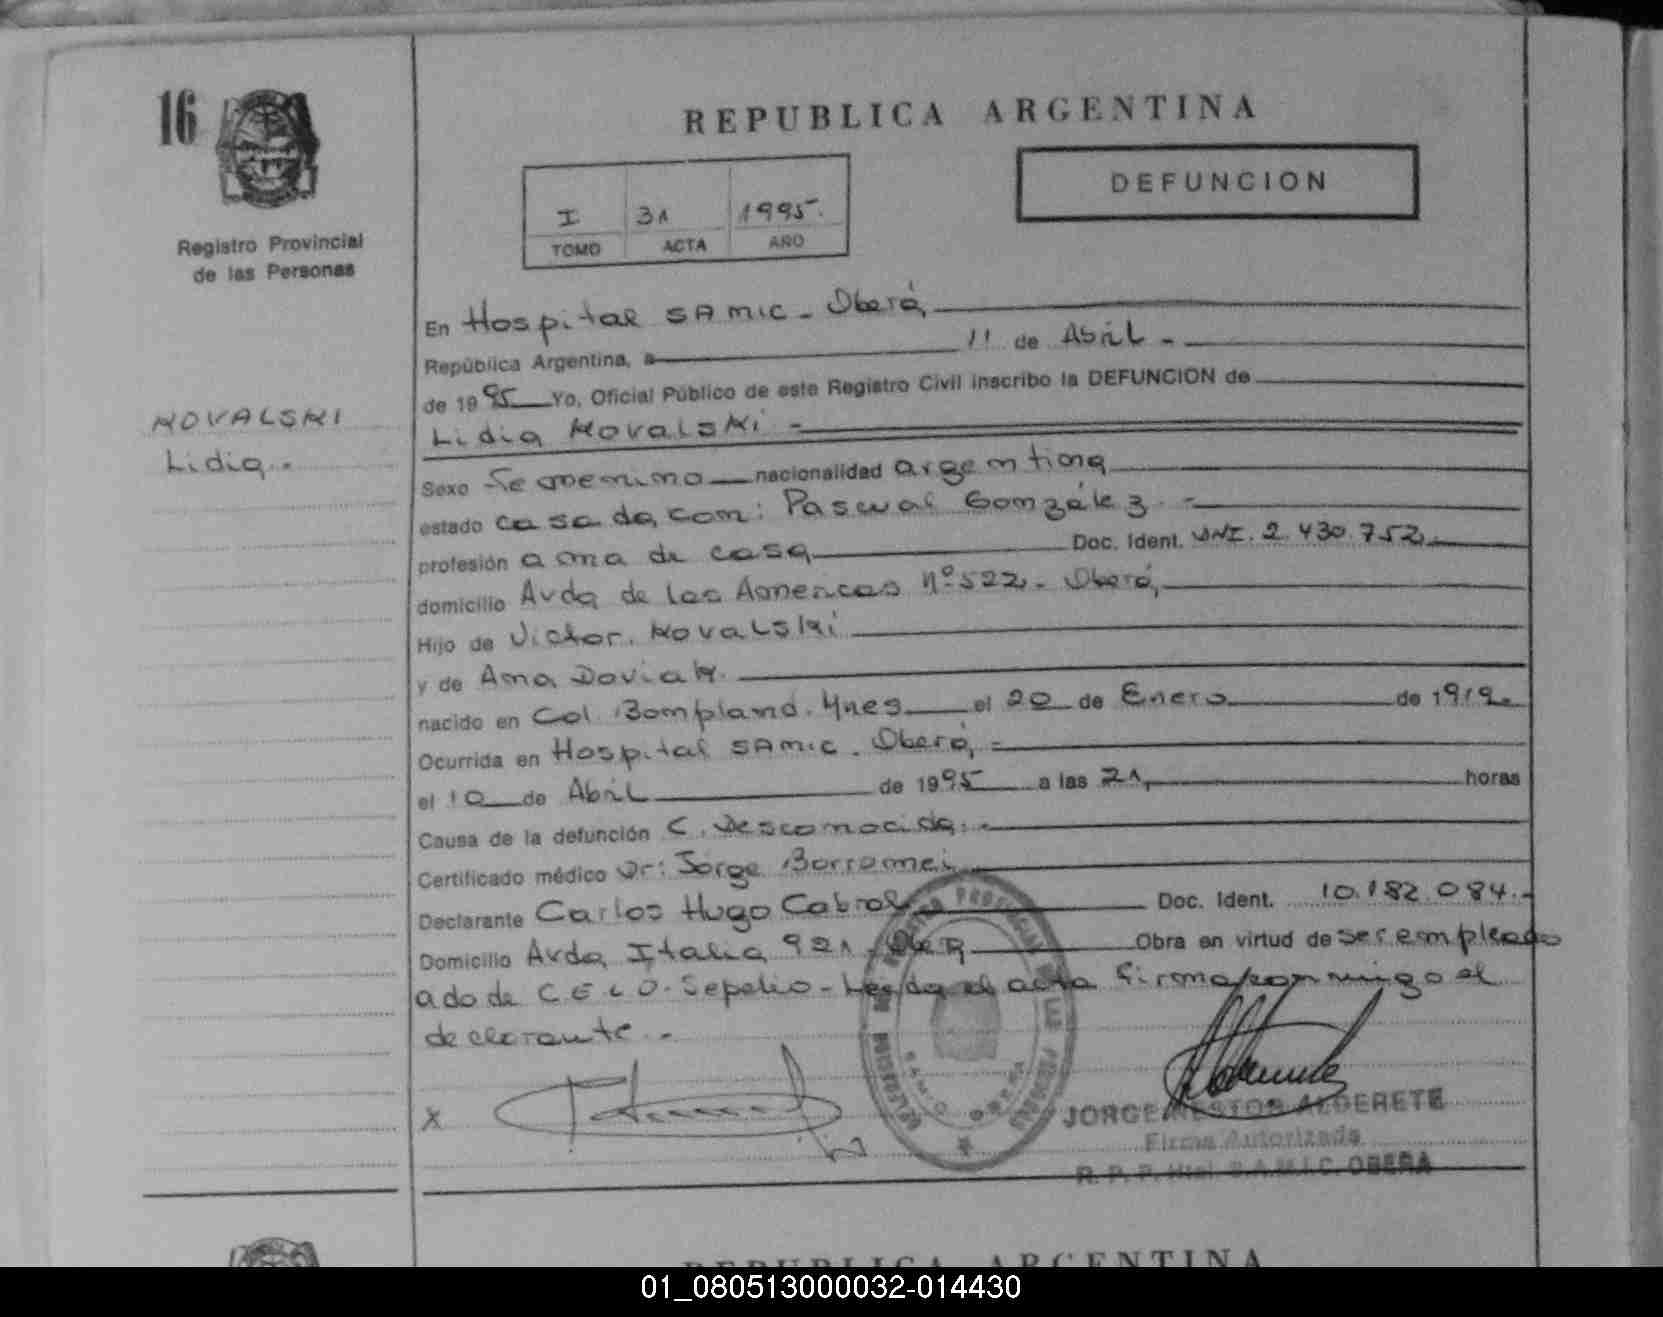 16
REPUBLICA ARGENTINA
DEFUNCION
I 31 1995.
TOMO ACTA AÑO
Registro Provincial
de las Personas
KOVALSKI
Lidia.-
En Hospital SAMIC - Oberá,
República Argentina, a 11 de Abril -
de 1995 Yo, Oficial Público de este Registro Civil inscribo la DEFUNCION de
Lidia Kovalski -
Sexo Femenino nacionalidad argentina
estado casada, con: Pascual González. -
profesión ama de casa Doc. Ident. DNI. 2.430.752
domicilio Avda de las Americas Nº 522 - Oberá,
Hijo de Victor Kovalski
y de Ana Doviak.
nacido en Col. Bompland. Mnes el 20 de Enero de 1919.
Ocurrida en Hospital SAMIC. Oberá, -
el 10 de Abril de 1995 a las 21, horas
Causa de la defunción C. Desconocida. -
Certificado médico Dr: Jorge Borromei
Declarante Carlos Hugo Cabral Doc. Ident. 10.182.084.-
Domicilio Avda Italia 921 Oberá Obra en virtud de ser empleado
ado de C E L O - Sepelio - Leída el acta firma conmigo el
declarante. -
X
JORGE NESTOR ALDERETE
Firma Autorizada
R. P. P. Htal. S.A.M.I.C. OBERA
REPUBLICA ARGENTINA
01_080513000032-014430